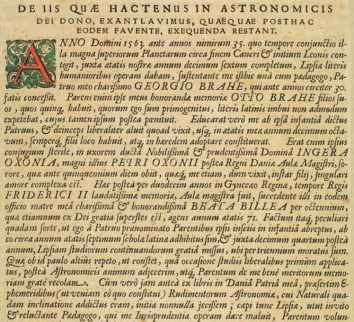 DE IIS QUÆ HACTENUS IN ASTRONOMICIS
DEI DONO, EXANTLAVIMUS, QUÆQUAE POSTHAC
EODEM FAVENTE, EXEQUENDA RESTANT.
ANNO Domini 1563. ante annos nimirum 35. quo tempore conjunctio il-
la magna superiorum Planetarum circa finem Cancri & initium Leonis con-
tigit, juxta ætatis nostræ annum decimum sextum completum, Lipsiæ literis
humanioribus operam dabam, sustentante me illhic unà cum pædagogo, Pa-
truo meo charissimo GEORGIO BRAHE, qui ante annos circiter 30.
fatis concessit. Parens enim ipse meus honorandæ memoriæ OTTO BRAHE filios su-
os, quos quinq, habuit, quorum ego sum primogenitus, literis latinis imbui non admodum
expetebat, cujus tamen ipsum postea pœnituit. Educarat verò me ab ipsâ infantiâ dictus
Patruus, & deinceps liberaliter aluit quoad vixit, usq, in ætatis meæ annum decimum octa-
vum, semperq, filii loco habuit, atq, in hæredem adoptare constituerat. Erat enim ipsius
conjugium sterile, ut uxorem duxit Nobilissimã & prudentissimã Dominã INGERA
OXONIA, magni illius PETRI OXONII postea Regni Daniæ Aulæ Magistri, so-
rore, quæ ante quinquennium diem obiit, quæq, me etiam, dum vixit, instar filij, singulari
amore complexa est. Hæc postea per duodecim annos in Gynæceo Reginæ, tempore Regis
FRIDERICI II laudatissimæ memoriæ, Aulæ magistra fuit, succedente illi in eodem
officio matre meâ charissimâ & honorandissimâ BEATA BILLEA per octennium,
quæ etiamnum ex Dei gratiâ superstes est, agens annum ætatis 71. Factum itaq, peculiari
quadam sorte, ut ego à Patruo prænominato Parentibus ipsis insciis in infantiâ abreptus, ab
eo circa annum ætatis septimum scholæ latinæ adhibitus sim, & juxta decimum quartum postea
annum, Lipsiam studiorum continuandorum gratiâ missus, ubi per triennium moratus sum.
Quæ ob id paulò altiùs repeto, ut constet, quâ occasione studiis liberalibus primùm applica-
tus, posteà Astronomicis animum adjecerim, utq, Parentum de me bene meritorum memo-
riam gratè recolam. Cùm verò jam anteà ex libris in Daniâ Patriâ meâ, præsertim è-
phemeridibus (ut veniam eò quo constitui) Rudimentorum Astronomiæ, cui Naturali qua-
dam inclinatione addictus eram, initia nonnulla jecissem; cæpi tunc Lipsiæ, ut ut invito
& reluctante Pædagogo, qui me Jurisprudentiæ operam dare maluit, Parentum volun-